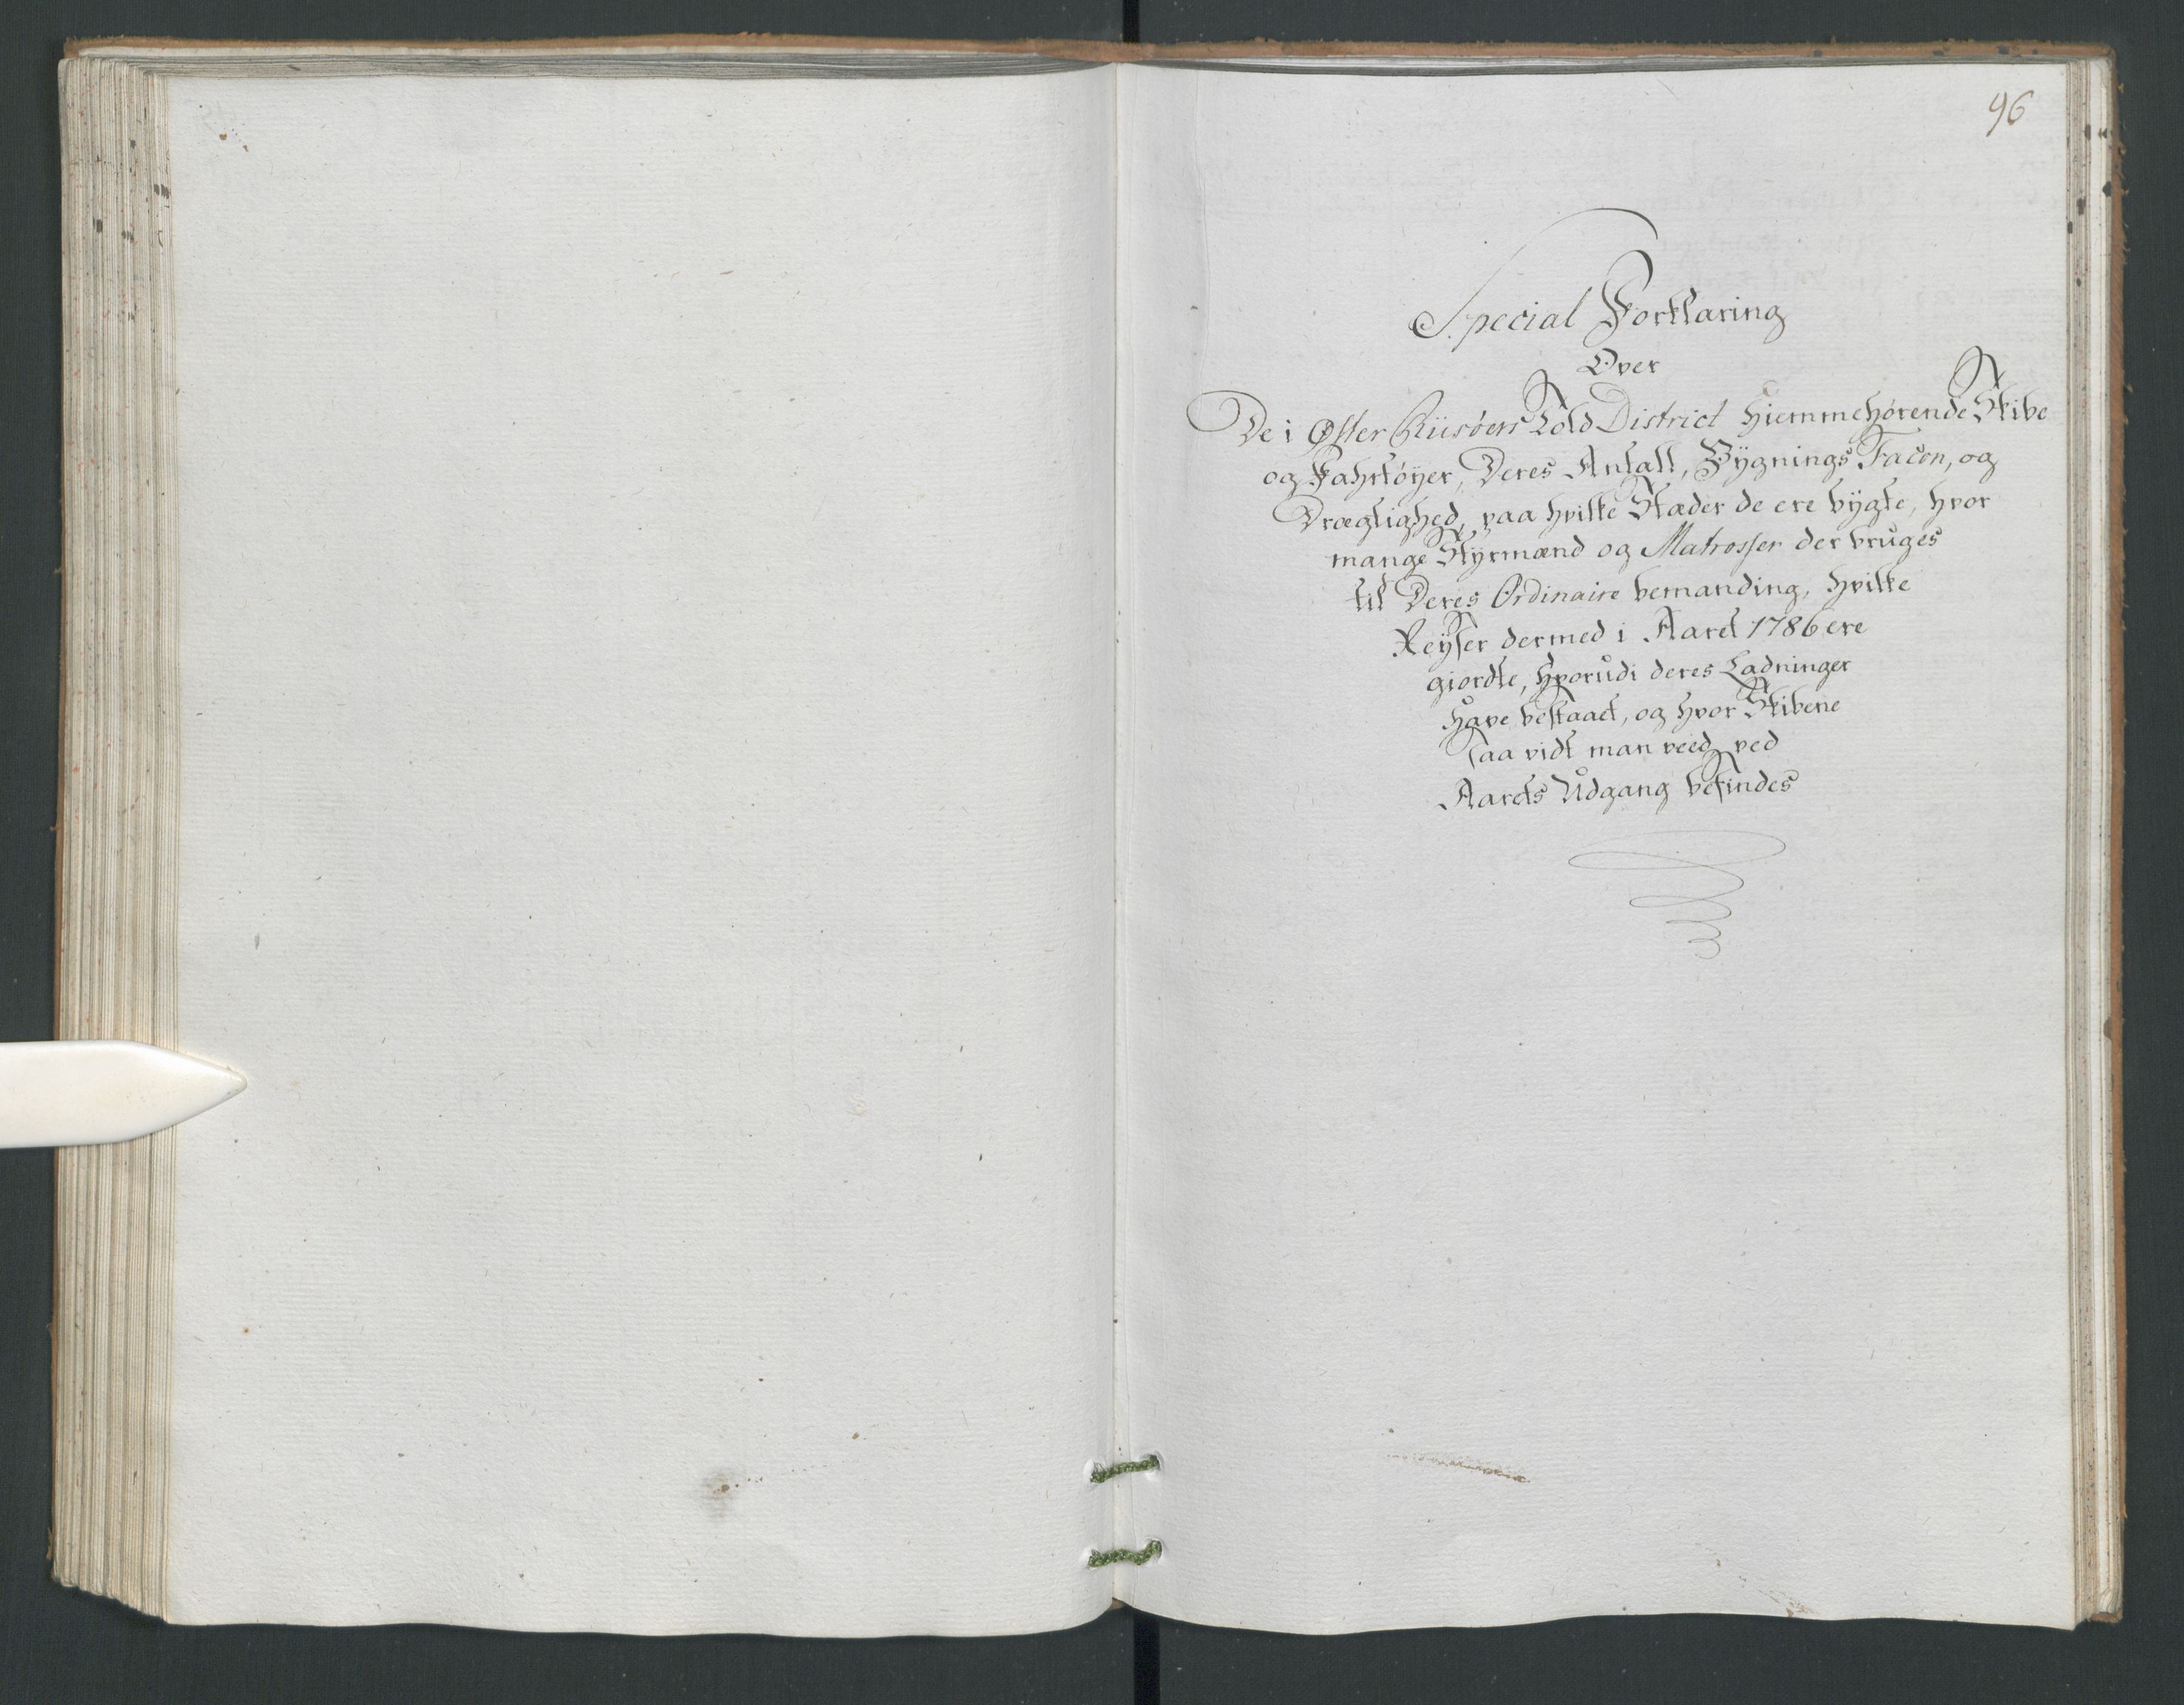 96
Special Forklaring
Over
De i Øster Riisöers Told District Hiemmehörende Skibe
og Fahrtöyer, Deres Antall, Bÿgnings Facon, og
Drægtighed, paa hvilke Stæder de ere bÿgte, hvor
mange Stÿrmænd og Matrosser der bruges
til Deres Ordinaire bemanding, hvilke
Reÿser dermed i Aaret 1786 ere
giordte, hvorudi deres Ladninger
have bestaaet, og hvor Skibene
saa vidt man veed, ved
Aarets Udgang befindes